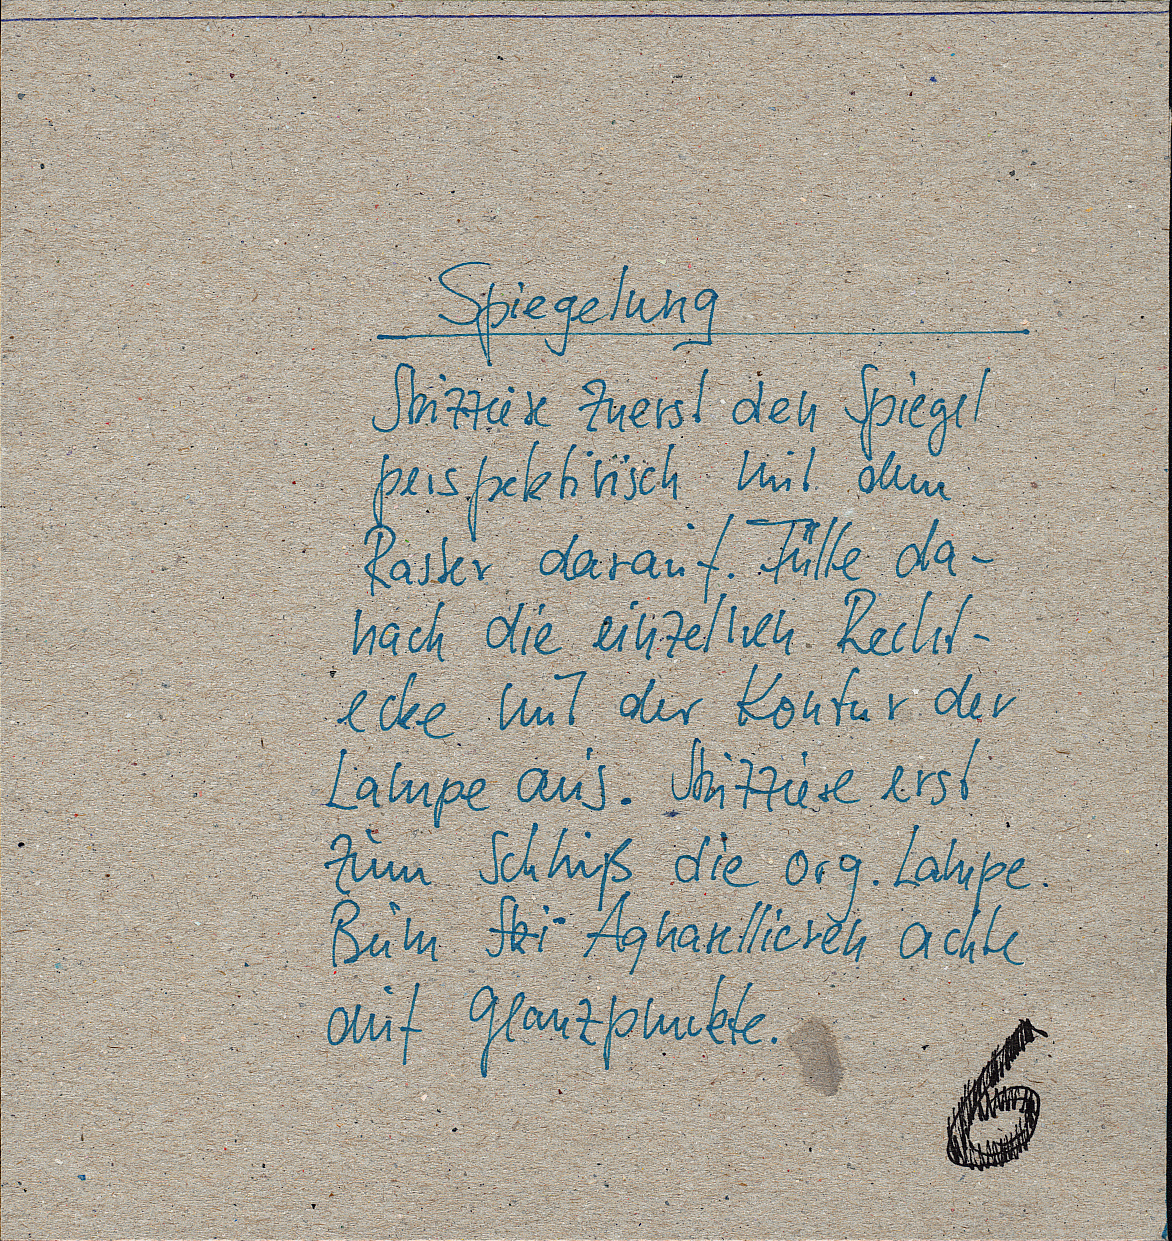 Spiegelung
Skizziere zuerst den Spiegel
perspektivisch mit dem
Raster darauf. Fülle da-
nach die einzelnen Recht-
ecke mit der Kontur der
Lampe aus. Skizziere erst
zum Schluß die org. Lampe.
Beim Ski Aquarellieren achte
auf Glanzpunkte.
6